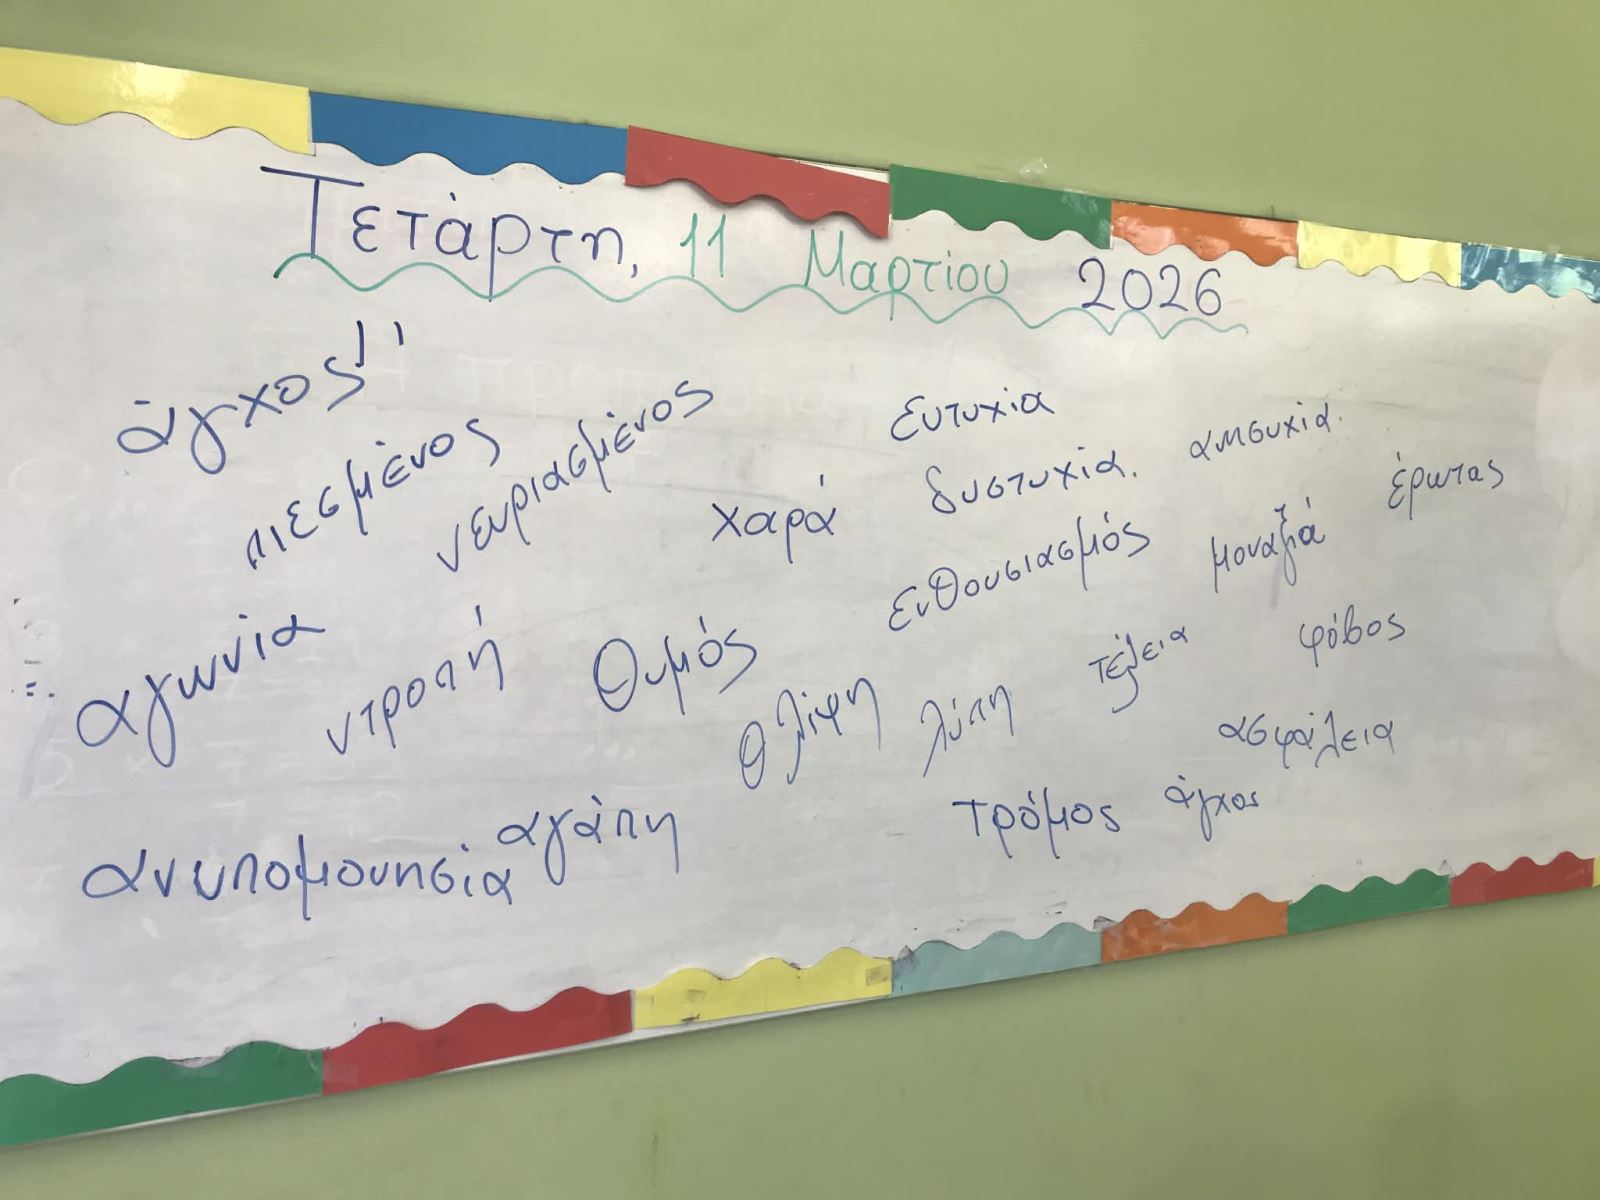 Τετάρτη, 11 Μαρτίου 2026
άγχος!!
πιεσμένος
νευριασμένος
χαρά
ευτυχία
δυστυχία.
ανησυχία.
έρωτας
ενθουσιασμός
μοναξιά
αγωνία
ντροπή
θυμός
θλίψη
λύπη
τέλεια
φόβος
ασφάλεια
ανυπομουησία
αγάπη
τρόμος
άγχος